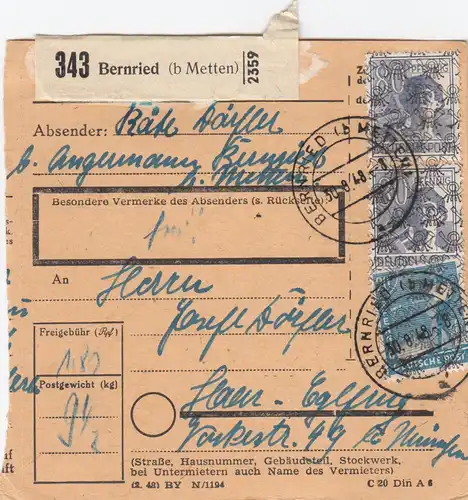 343 Bernried (b Metten) 2359
Absender: Käte Dörfler
b. Angermann Bernried
b. Metten
Besondere Vermerke des Absenders (s. Rückseite)
frei!
An Herrn
Josef Dörfler
Haar-Eglfing
Vockestr. 49 b München
Freigebühr (Rpf)
1.80
Postgewicht (kg)
(Straße, Hausnummer, Gebäudeteil, Stockwerk,
bei Untermietern auch Name des Vermieters)
(2. 48) BY N/1194 C 20 Din A 6
BERNRIED (b METTEN)
30.8.48
BERNRIED (b METTEN)
30.8.48
DEUTSCHE POST